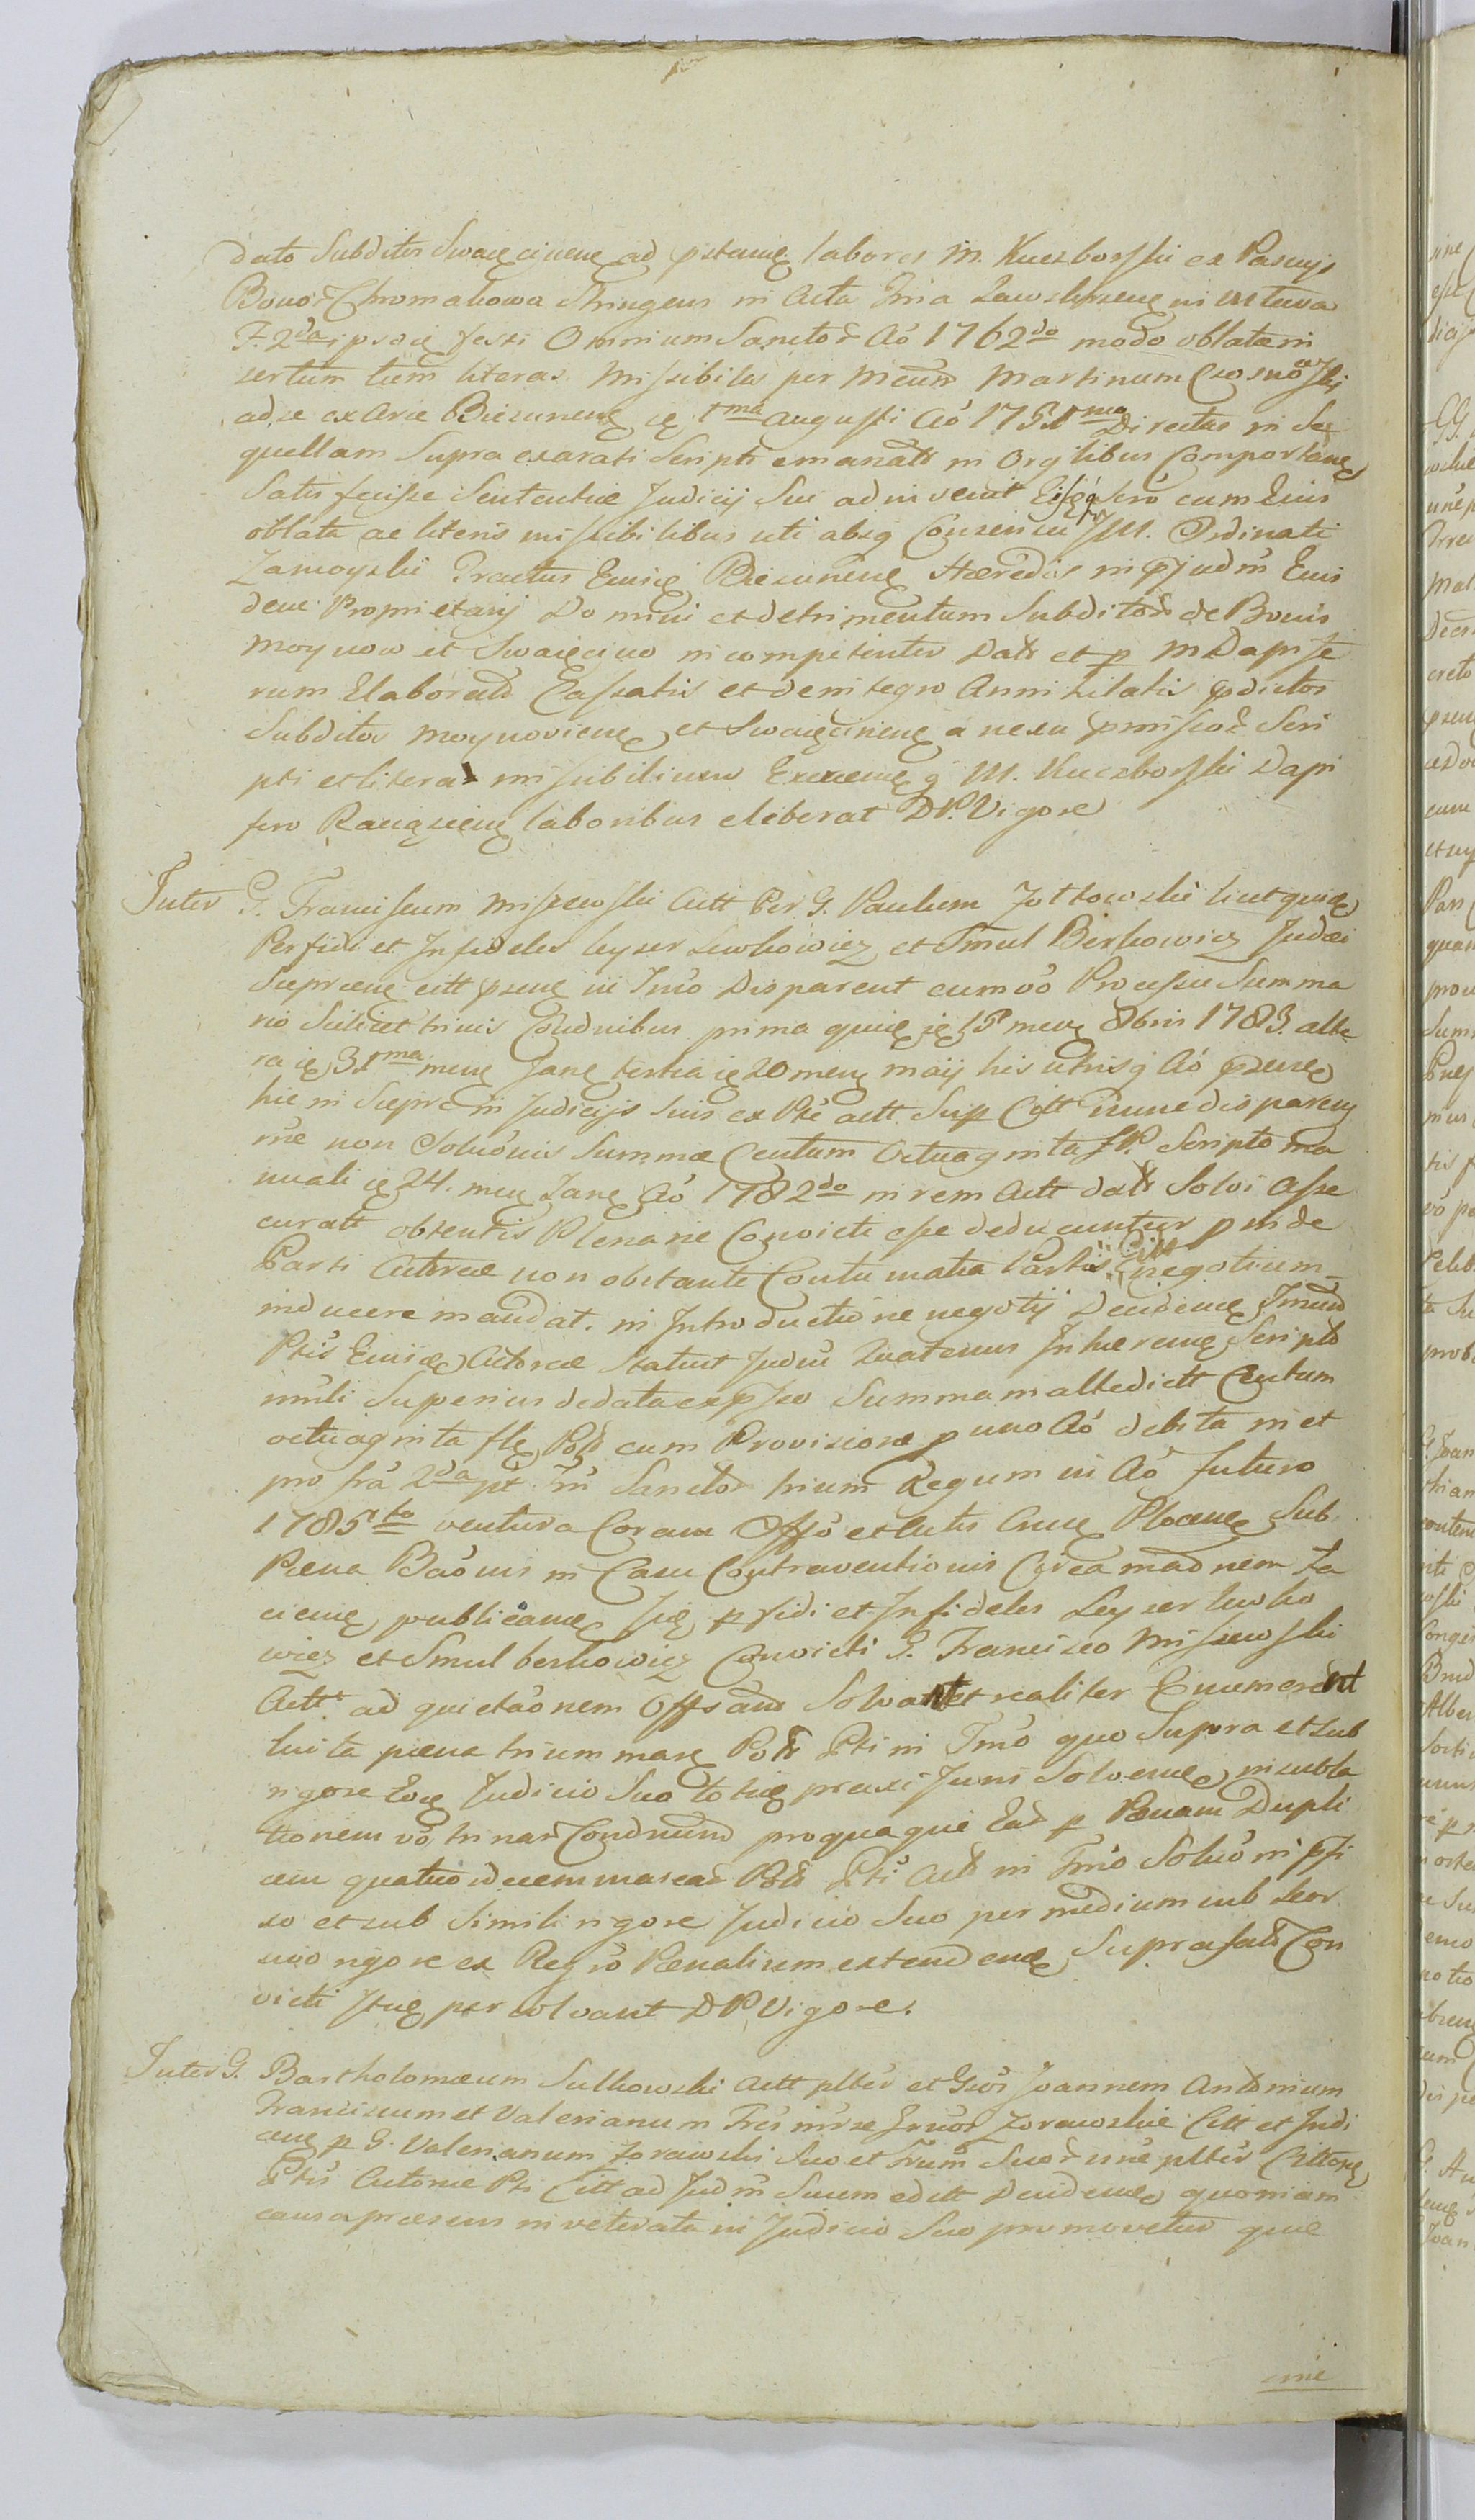 dato Subditos Swaięcinens ad pstams labores M. Kuczborski ex Pascuys
Bonor Chromakowa Stringens in Acta Tria Zawskrzens in
F. 2da ipsoq festi Omnium Sanctor Aõ 1762do modo oblatæ in
sertum tum literas Missibiles per Meum Martinum Czosnowskj
ad se ex Arce Biezunens ie 1ma Augusti Aõ 1751ma Directas in Se
quellam Supra exarati Scripti emanats in Orglibus Comportans
Satisfecisse Sententiæ Judicij Sui adinvenit cum Eius
oblata ac literis missibilibus uti absq Consensu JM. Ordinati
Zamoyski Tractus Eiusq Biezunens Hæredis in pjudm Eius
dem Proprietarij Domini et detrimentum Subditor de Bonis
Moynow et Swaięcino incompetenter Dats et p M Dapife
rum Elaborats Cassatis et de integro Annihilatis pdictos
Subditos Moynoviens et Swaięcinens a nexu pmissor Scri
pti et literar missibilium M. Kuczborski Dapi
fero Raciąziens laboribus eliberat DP. Vigore
Inter G. Franciscum Miszewski Actt Per G. Paulum Zotkowski licetque
Perfidi et Infideles Leyser Lewkowicz et Smul Berkowicz Judæi
Sieprcens citt psens in Tnõ Disparent cum võ Processu Summa
rio Scilicet trinis Condnibus prima quie ie 15 mens 8bris 1783. alte
ra ie 31ma mens Jans tertia ie 20 mens Maij his utrisq Aõ psens
hic in Sieprc in Judicijs suis ex Pte actt Sup Citt nunc disparens
rne non Solvõnis Summæ Centum Octuaginta flP. Scripto ma
nuali ie 24. mens Jans Aõ 1782do in rem Actt dats Solvi Asse
curatt obtentis Plenarie Convicti esse deducuntur pinde
Parti Actoreæ non obstante Contumatia Partis Citt negotium
inducere mandat. in Introductione negotij Decidens Tnum
Ptis Eiusd Actoreæ Statuit Judm Quatenus Inhærens Scripto
mnli Superius de data expsso Summam alledictt Centum
octuaginta fls Pols cum Provisione p uno Aõ debita in et
pro frã 2da pt fm Sanctor trium Regum in Aõ futuro
1785to ventura Coram Offõ et Actis Cnens Plocens Sub
Pæna Baõnis in Casu Contraventionis Circa madnem ta
ciens publicans Jq pfidi et Infideles Leyser Lewko
wicz et Smul berkowicz Convicti G. Francisco Miszewski
Actt ad quietaõnem Offsand Solvant et realiter Enumerent
Luita pæna trium marc Pols Pti in Tnõ quo Supra et sub
rigore Eoq Judicio Suo toties praxi Juris Solvens in subla
tionem võ trinar Condnum pro qua que Ead p Pænam Dupli
cem quatuordecem marcar Pols Pti Act in Tnõ Solvõni pfi
xo et sub Simili rigore Judicio Suo per medium sub Seor
sivo rigore ex Regrõ Pænalium extendens Suprafats Con
victi Jtq persolvant DP Vigore.
Inter G. Bartholomæum Sulkowski Actt plter et Gsos Joannem Antonium
Franciscum et Valerianum Fres inter se Gnos Zorawskie Citt et Judi
cens p G. Valerianum Zorawski Suo et Frum Suor nne plter Cittore
Ptis Actoriæ Pti Citt ad Judm Suum edctt Decidens quoniam
causa præsens inveterata in Judicio Suo promovetur quæ
nne